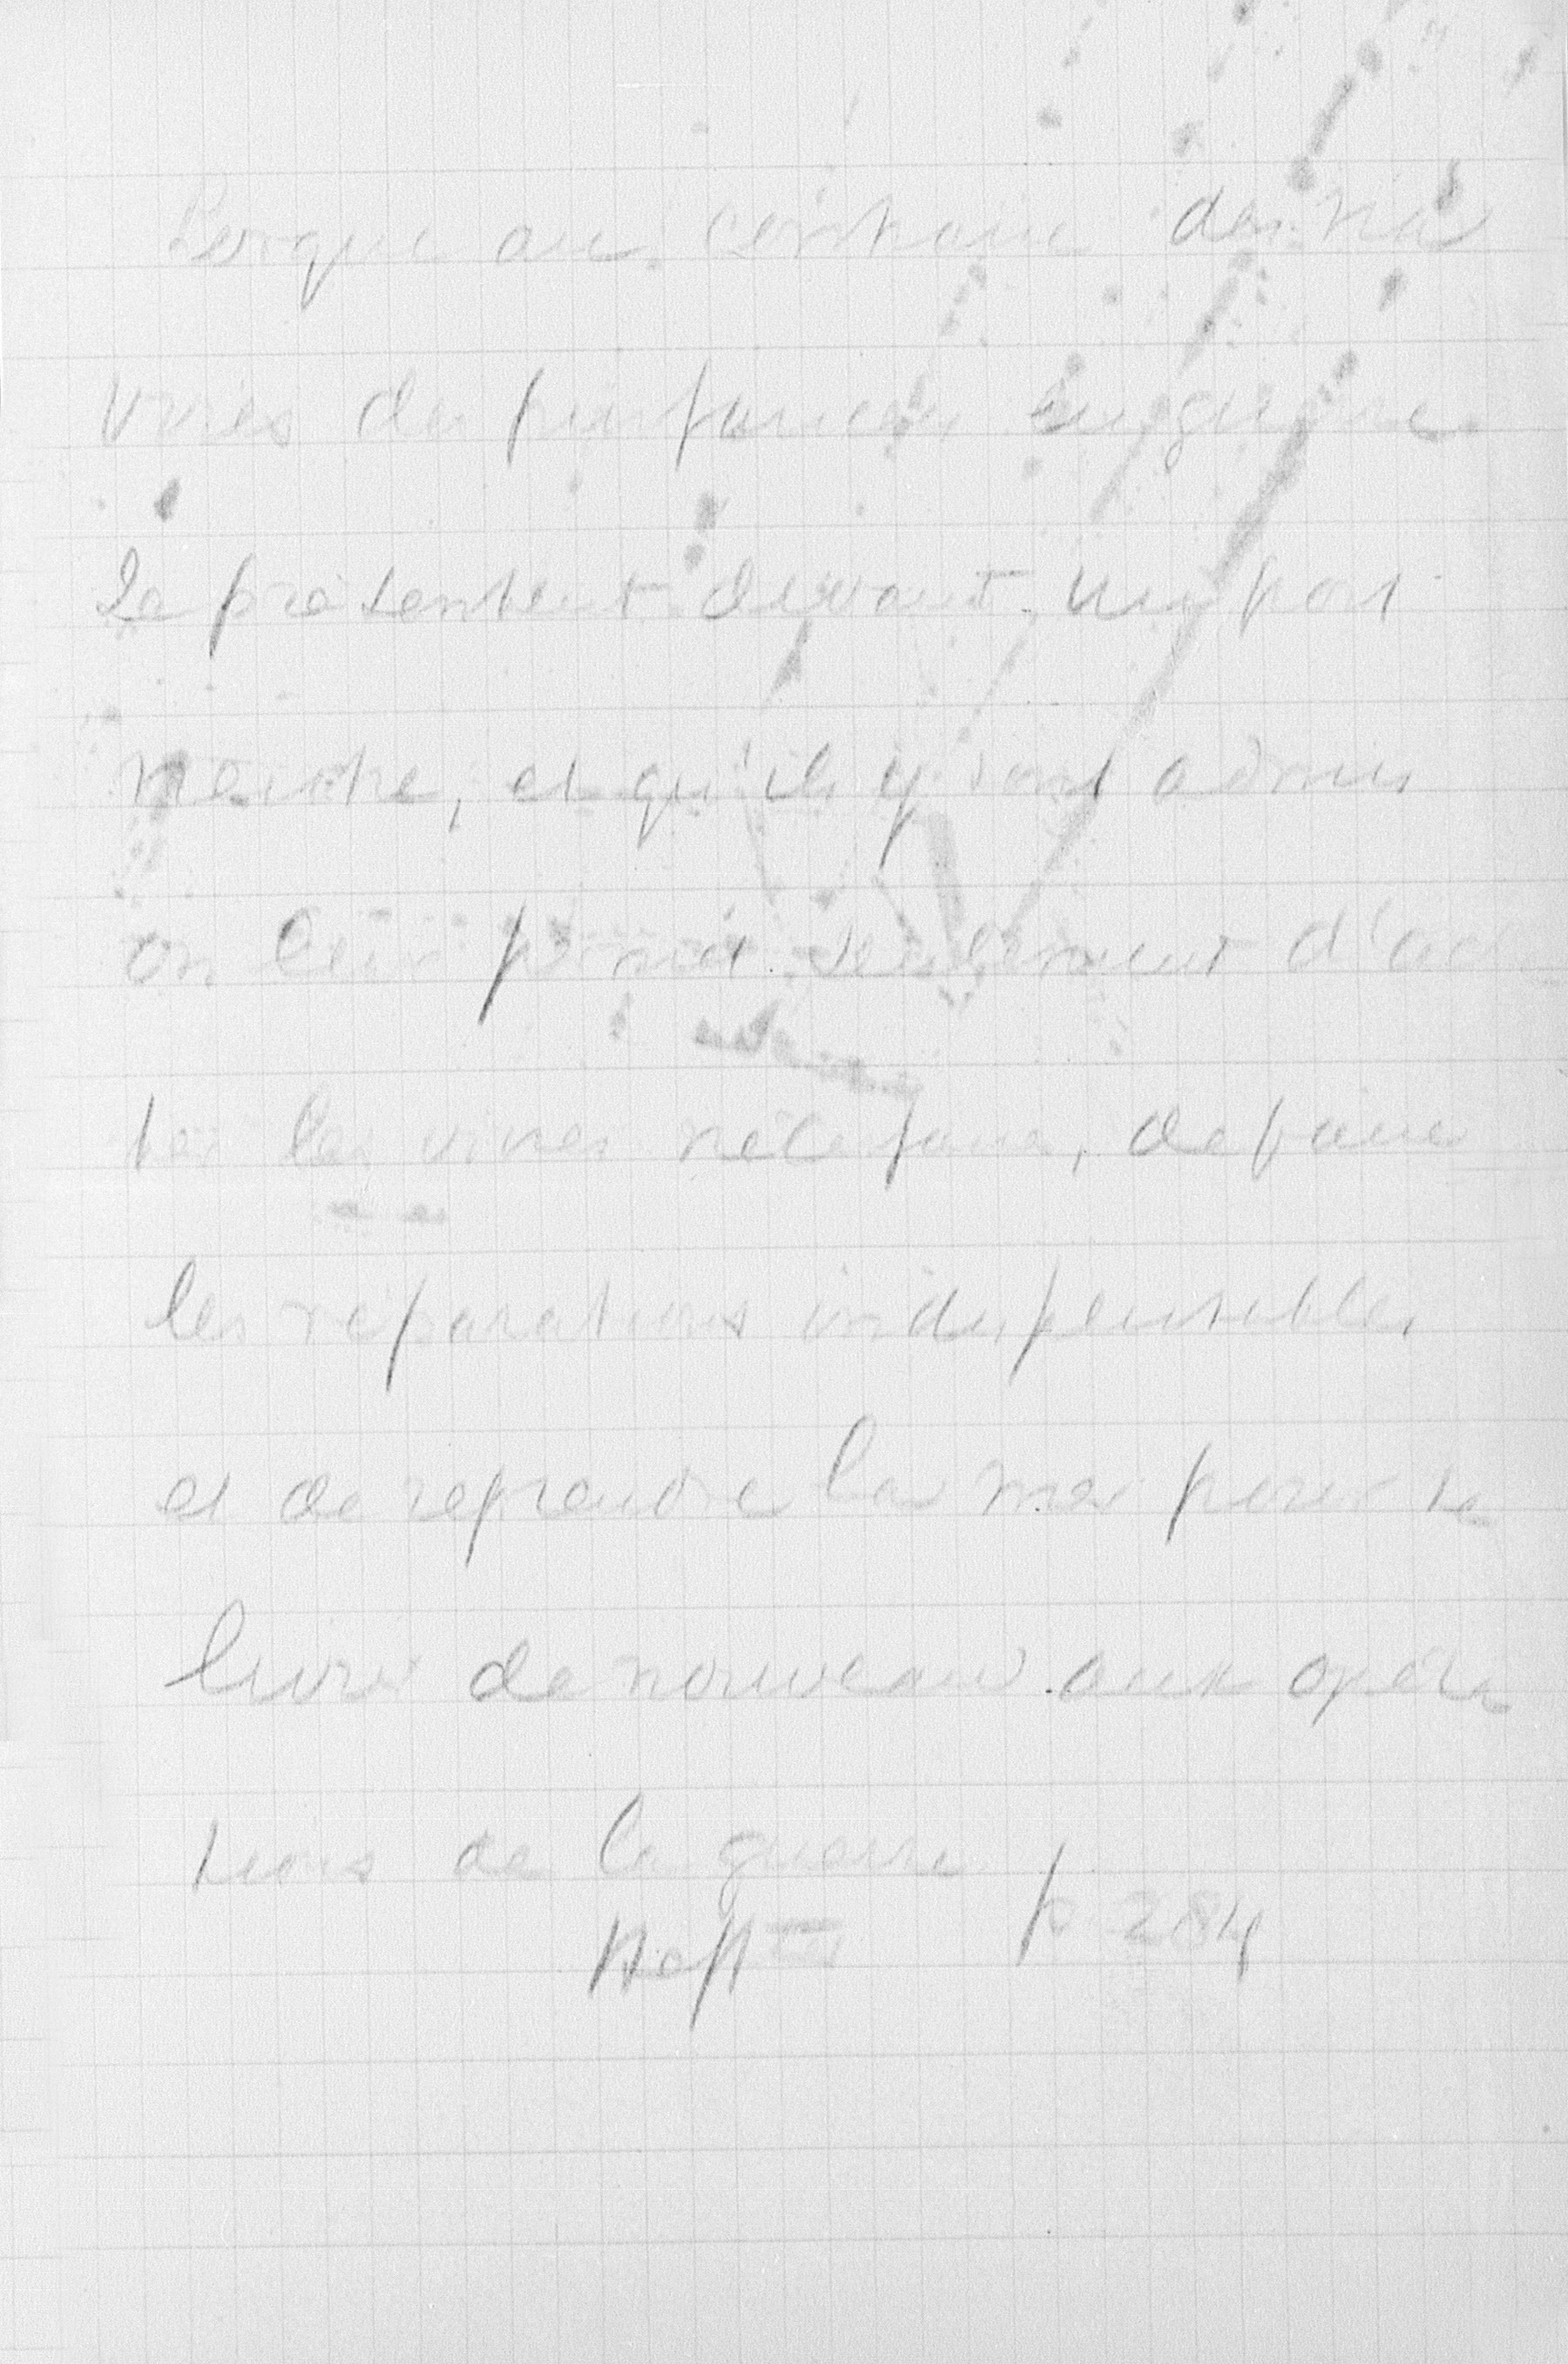 Lorque au contraire des na
vires des puissances en guerre
se présentent devant un port
neutre, et qu'ils y sont admis
on leur permet seulement d'ache
ter les vivres nécessaires, de faire
les réparations indispensables
et de reprendre la mer pour se
livrer de nouveau aux opéra
tions de la guerre
p 284